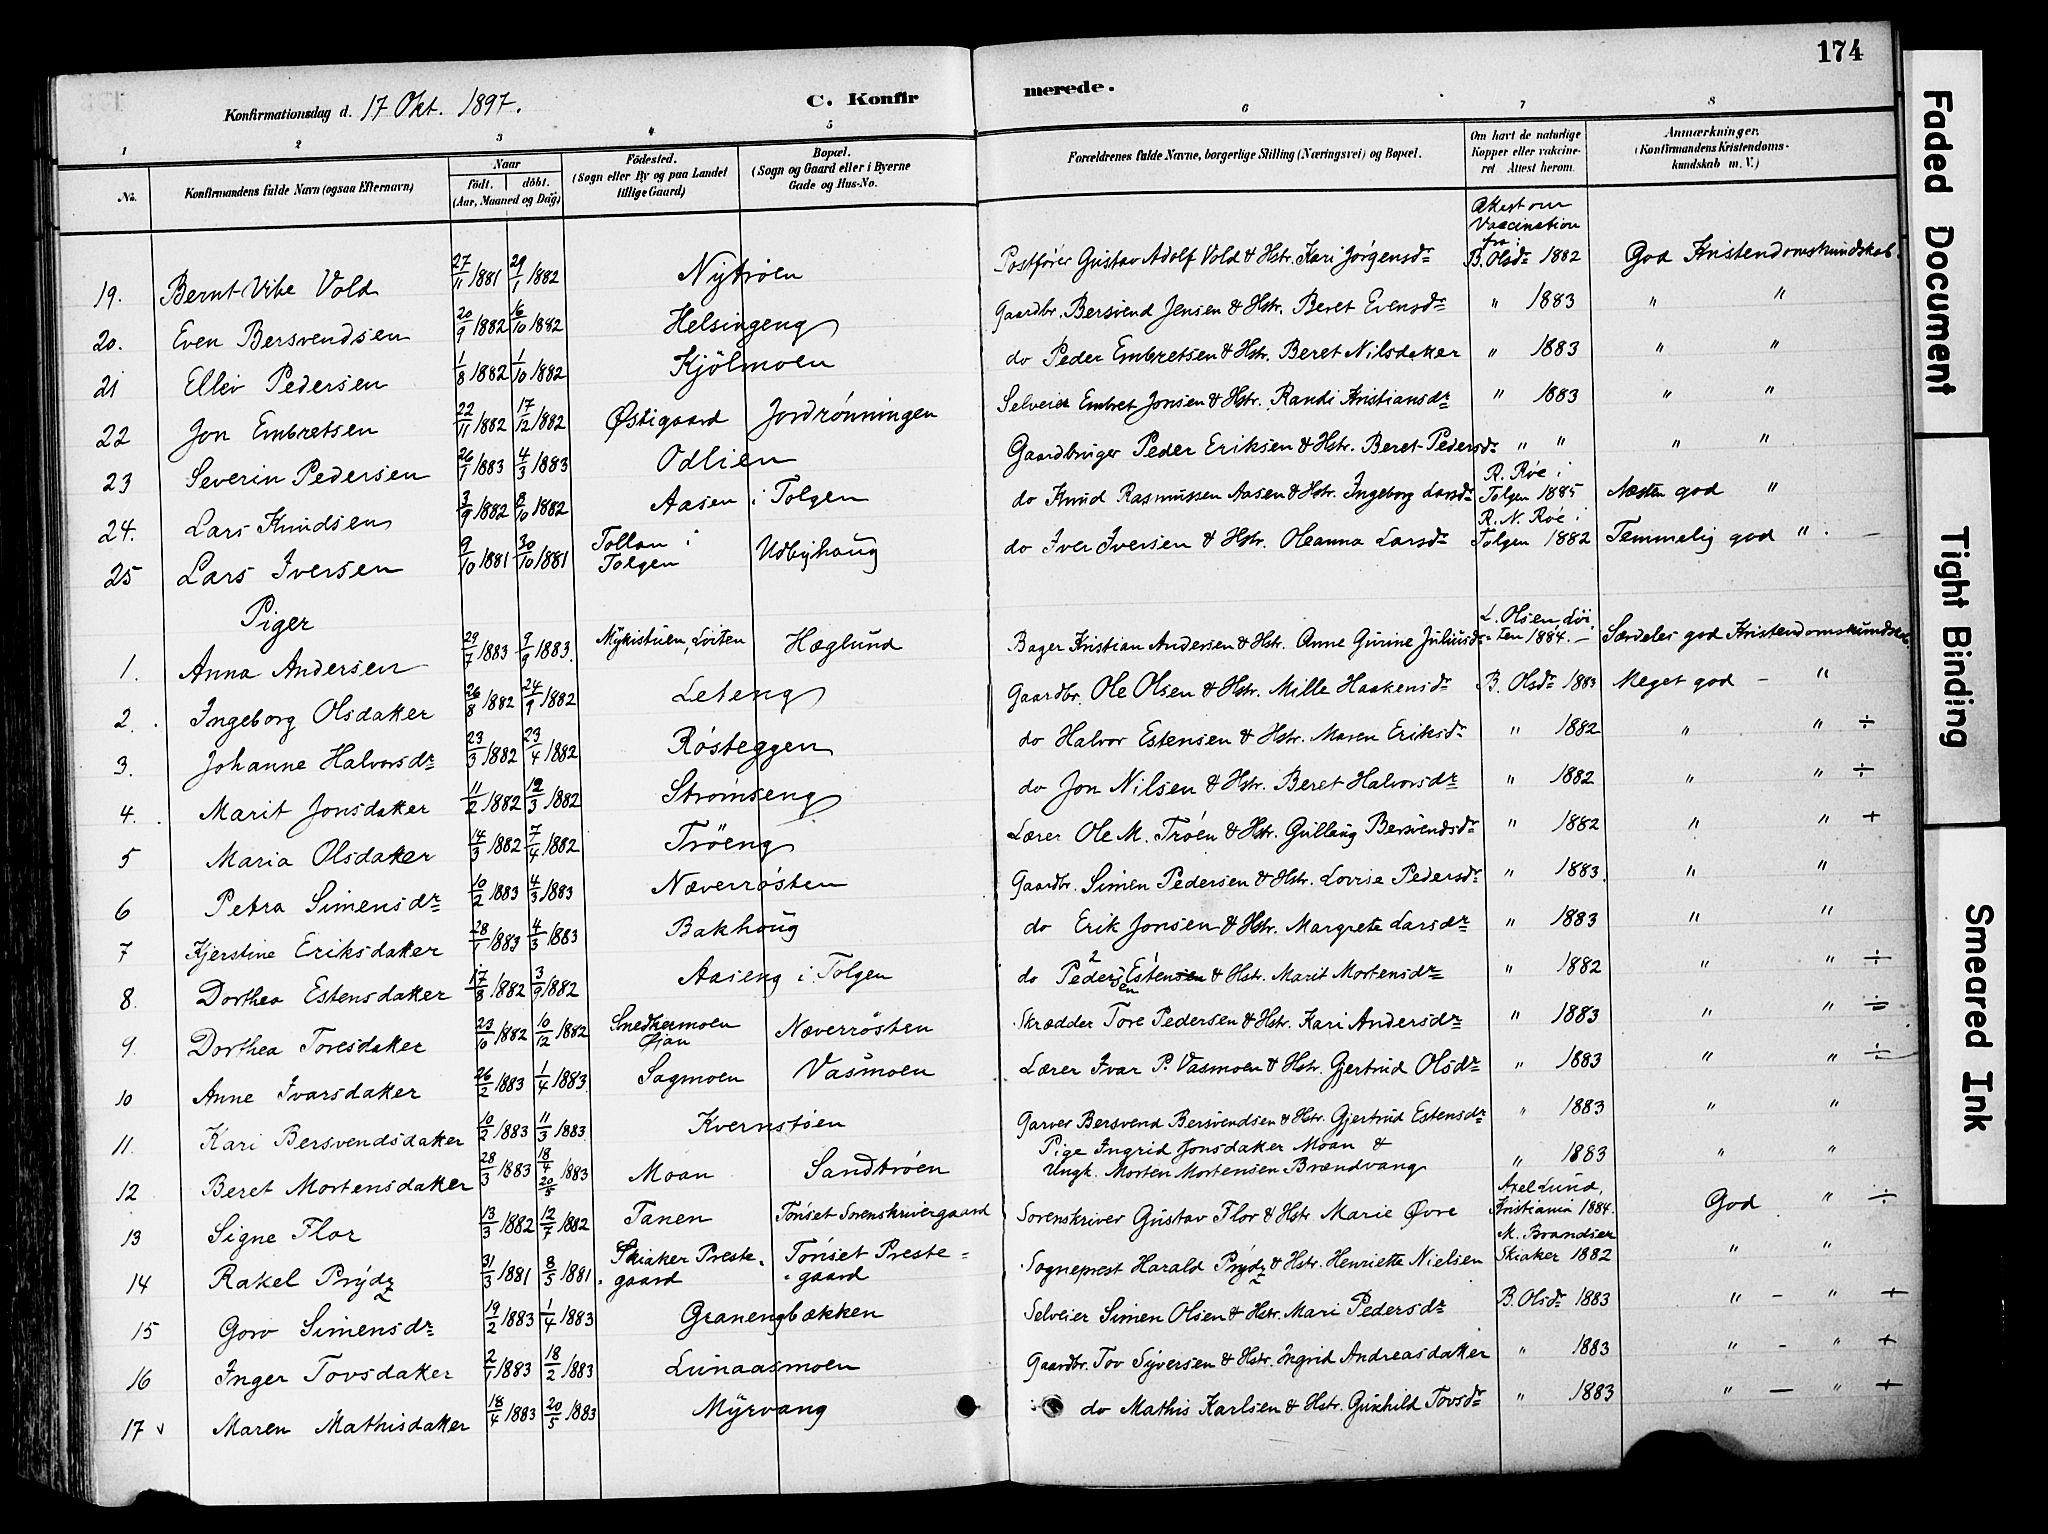 174
Konfirmationsdag d. 17 Okt. 1897.
C. Konfirmerede.
1 2 3 4 5 6 7 8
No.
Konfirmandens fulde Navn (ogsaa Efternavn)
Naar
født. døbt.
(Aar, Maaned og Dag)
Fødested.
(Sogn eller By og paa Landet
tillige Gaard)
Bopæl.
(Sogn og Gaard eller i Byerne
Gade og Hus-No.
Forældrenes fulde Navne, borgerlige Stilling (Næringsvei) og Bopæl.
Om havt de naturlige
Kopper eller vakcineret
Attest herom.
Anmærkninger.
(Konfirmandens Kristendomskundskab
m. V.)
Attest om
Vaccination
fra:
19. Bernt Vibe Vold 27/11 1881 29/1 1882 Nytrøen Postfører Gustav Adolf Vold & Hstr. Kari Jørgensdr B. Olsdr 1882 God Kristendomskundskab
20. Even Bersvendsen 20/9 1882 16/10 1882 Helsingeng Gaardbr. Bersvend Jensen & Hstr. Beret Evensdr " 1883 " "
21 Ellev Pedersen 1/8 1882 1/10 1882 Kjölmoen do Peder Embretsen & Hstr. Beret Nilsdatter " 1883 " "
22 Jon Embretsen 22/11 1882 17/12 1882 Østigaard Jordrønningen Selveier Embret Jonsen & Hstr. Randi Kristiansdr " 1883 " "
23 Severin Pedersen 26/1 1883 4/3 1883 Odlien Gaardbruger Peder Eriksen & Hstr. Beret Pedersdr " " " "
24. Lars Knudsen 3/9 1882 8/10 1882 Aasen i Tolgen do Knud Rasmussen Aasen & Hstr. Ingeborg Larsdr R. Røe i Tolgen 1885 Næsten god "
25 Lars Iversen 9/10 1881 30/10 1881 Tollan i Tolgen Udbyhaug do Iver Iversen & Hstr. Oleanna Larsdr R. N. Røe i Tolgen 1882 Temmelig god " . —
Piger
1. Anna Andersen 29/7 1883 9/9 1883. Mykistuen, Løiten Hæglund Bager Kristian Andersen & Hstr. Anne Gurine Juliusdr L. Olsen, Løiten 1884. — Særdeles god Kristendomskundskab.
2. Ingeborg Olsdatter 26/8 1882 24/9 1882 Leteng Gaardbr. Ole Olsen & Hstr. Mille Haakensdr B. Olsdr 1883 Meget god — "
3. Johanne Halvorsdr 23/3 1882 23/4 1882 Røsteggen do Halvor Estensen & Hstr. Maren Eriksdr " 1882 " " ÷
4. Marit Jonsdatter 11/2 1882 12/3 1882 Strømseng do Jon Nilsen & Hstr. Beret Halvorsdr " 1882 " " ÷
5 Maria Olsdatter 14/3 1882 7/4 1882 Trøeng Lærer Ole M. Trøen & Hstr. Gullaug Bersvendsdr " 1882 " " +
6 Petra Simensdr 10/2 1883 4/3 1883 Næverrøsten Gaardbr. Simen Pedersen & Hstr. Lovise Pedersdr " 1883. " "
7 Kjerstine Eriksdatter 28/1 1883 4/3 1883 Bakhaug do Erik Jonsen & Hstr. Margrete Larsdr " 1883 " "
8. Dorthea Estensdatter 17/8 1882 3/9 1882 Aaseng i Tolgen do 2 Pedersen 1 Estensen & Hstr. Marit Mortensdr " 1882 " " ÷
9. Dorthea Toresdatter 23/10 1882 10/12 1882 Snedkermoen Næverrøsten Skrædder Tore Pedersen & Hstr. Kari Andersdr " 1883 " " ÷
10 Anne Ivarsdatter 26/2 1883 1/4 1883. Sagmoen Vasmoen Lærer Ivar P. Vasmoen & Hstr. Gjertrud Olsdr " 1883 " " ÷
11. Kari Bersvendsdatter 10/2 1883 11/3 1883 Kvernstøen Garver Bersvend Bersvendsen & Hstr. Gjertrud Estensdr " 1883 " "
12 Beret Mortensdatter 28/3 1883 18/4 20/5 1883 Moan Sandtrøen Pige Ingrid Jonsdatter Moan &
Ungk. Morten Mortensen Brændvang " 1883 " "
13 Signe Flor 13/3 1882 12/7 1882 Tanen Tønset Sorenskrivergaard Sorenskriver Gustav Flor & Hstr Marie Øvre Axel Lund, Kristiania 1884. God " ÷
14 Rakel Prydz 31/3 1881 8/5 1881 Skiaker Prestegaard Tønset Prestegaard Sogneprest Harald Prydz & Hstr. Henriette Nielsen M. Brandser Skiaker 1882 " "
15 Goro Simensdr 19/2 1883 1/4 1883 Granengbækken Selveier Simen Olsen & Hstr. Mari Pedersdr B. Olsdr 1883 " — " +
16 Inger Tovsdatter 2/1 1883 18/2 1883 Lunaasmoen Gaardbr. Tov Syversen & Hstr. Ingrid Andreasdatter " 1883 " - " +
17 v Maren Mathisdatter 18/4 1883 20/5 1883 Myrvang do Mathis Karlsen & Hstr. Gunhild Tovsdr " 1883 " — " +
Faded Document
Tight Binding
Smeared Ink